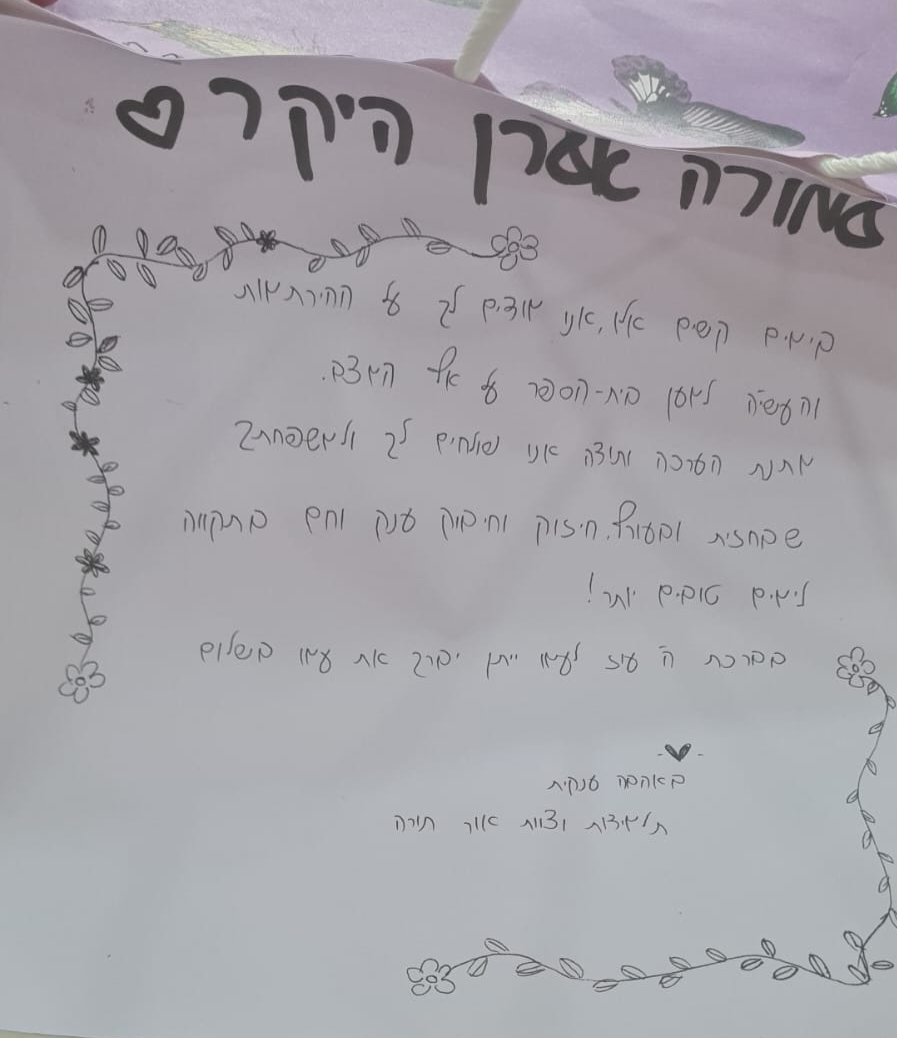 המורה אהרן היקר
בימים קשים אלו, אנו מודים לך על ההירתמות
והעשיה למען בית-הספר על אף המצב.
מתנת הערכה ותודה אנו שולחים לך ולמשפחתך
שבחזית ובעורף. חיזוק וחיבוק ענק וחם בתקווה
לימים טובים יותר!
בברכת ה' עוז לעמו ייתן יברך את עמו בשלום
באהבה ענקית
תלמידות וצוות אור תורה